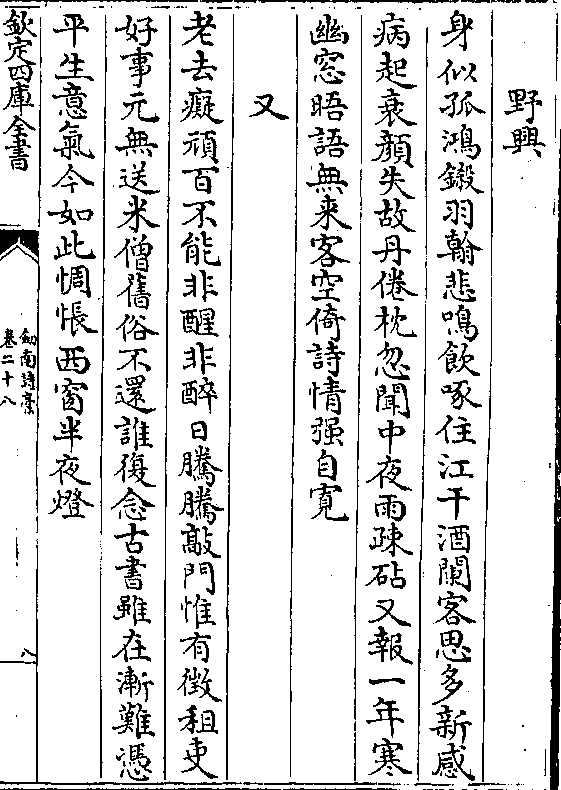 野興
身似孤鴻鎩羽翰悲鳴飲啄住江干酒闌客思多新感
病起衰顔失故丹倦枕忽聞中夜雨疎砧又報一年寒
幽窓晤語無来客空倚詩情强自寛
又
老去癡頑百不能非醒非醉日騰騰敲門惟有徴租吏
好事元無送米僧舊俗不還誰復念古書雖在漸難憑
平生意氣今如此惆悵西窗半夜燈
欽定四庫全書
劒南詩藁
卷二十八
八